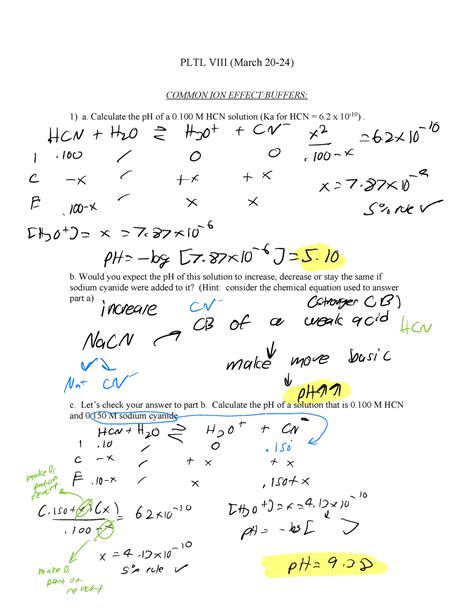 PLTL VIII (March 20-24)
COMMON ION EFFECT/BUFFERS:
1) a. Calculate the pH of a 0.100 M HCN solution (Ka for HCN = 6.2 x 10⁻¹⁰) .
HCN + H₂O ⇌ H₃O⁺ + CN⁻ x²/.100-x = 6.2x10⁻¹⁰
I .100 / 0 0
C -x / +x +x x = 7.87x10⁻⁶
E .100-x / x x 5% rule ✓
[H₃O⁺] = x = 7.87x10⁻⁶
pH = -log [7.87x10⁻⁶] = 5.10
b. Would you expect the pH of this solution to increase, decrease or stay the same if
sodium cyanide were added to it? (Hint: consider the chemical equation used to answer
part a)
increase CN⁻ (stronger CB)
NaCN → CB of a weak acid HCN
Na⁺ CN⁻ make more basic
pH↑↑
c. Let's check your answer to part b. Calculate the pH of a solution that is 0.100 M HCN
and 0.150 M sodium cyanide.
HCN + H₂O ⇌ H₃O⁺ + CN⁻
I .10 / 0 .150
C -x / + x + x
E .10-x / x .150+x
(.150+x)(x)/.100-x = 6.2x10⁻¹⁰ [H₃O⁺] = x = 4.13x10⁻¹⁰
pH = -log [ ]
x = 4.13x10⁻¹⁰
5% rule ✓
pH = 9.38
make 0,
part of
make 0,
part of